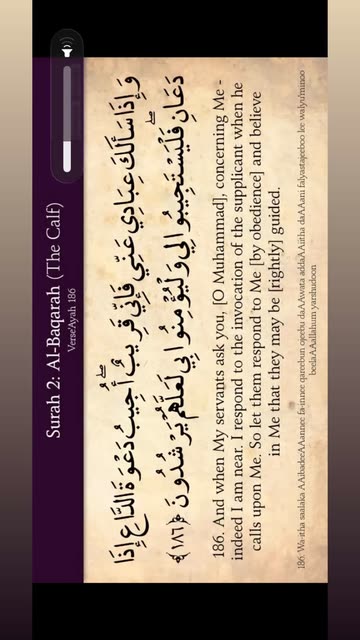 Surah 2: Al-Baqarah (The Calf)
Verse/Ayah 186
وَإِذَا سَأَلَكَ عِبَادِي عَنِّي فَإِنِّي قَرِيبٌ ۖ أُجِيبُ دَعْوَةَ الدَّاعِ إِذَا
دَعَانِ ۖ فَلْيَسْتَجِيبُوا لِي وَلْيُؤْمِنُوا بِي لَعَلَّهُمْ يَرْشُدُونَ ﴿١٨٦﴾
186. And when My servants ask you, [O Muhammad], concerning Me -
indeed I am near. I respond to the invocation of the supplicant when he
calls upon Me. So let them respond to Me [by obedience] and believe
in Me that they may be [rightly] guided.
186: Wa-itha saalaka AAibadeeAAannee fa-innee qareebun ojeebu daAAwata addaAAiitha daAAani falyastajeeboo lee walyu/minoo
beelaAAallahum yarshudoon